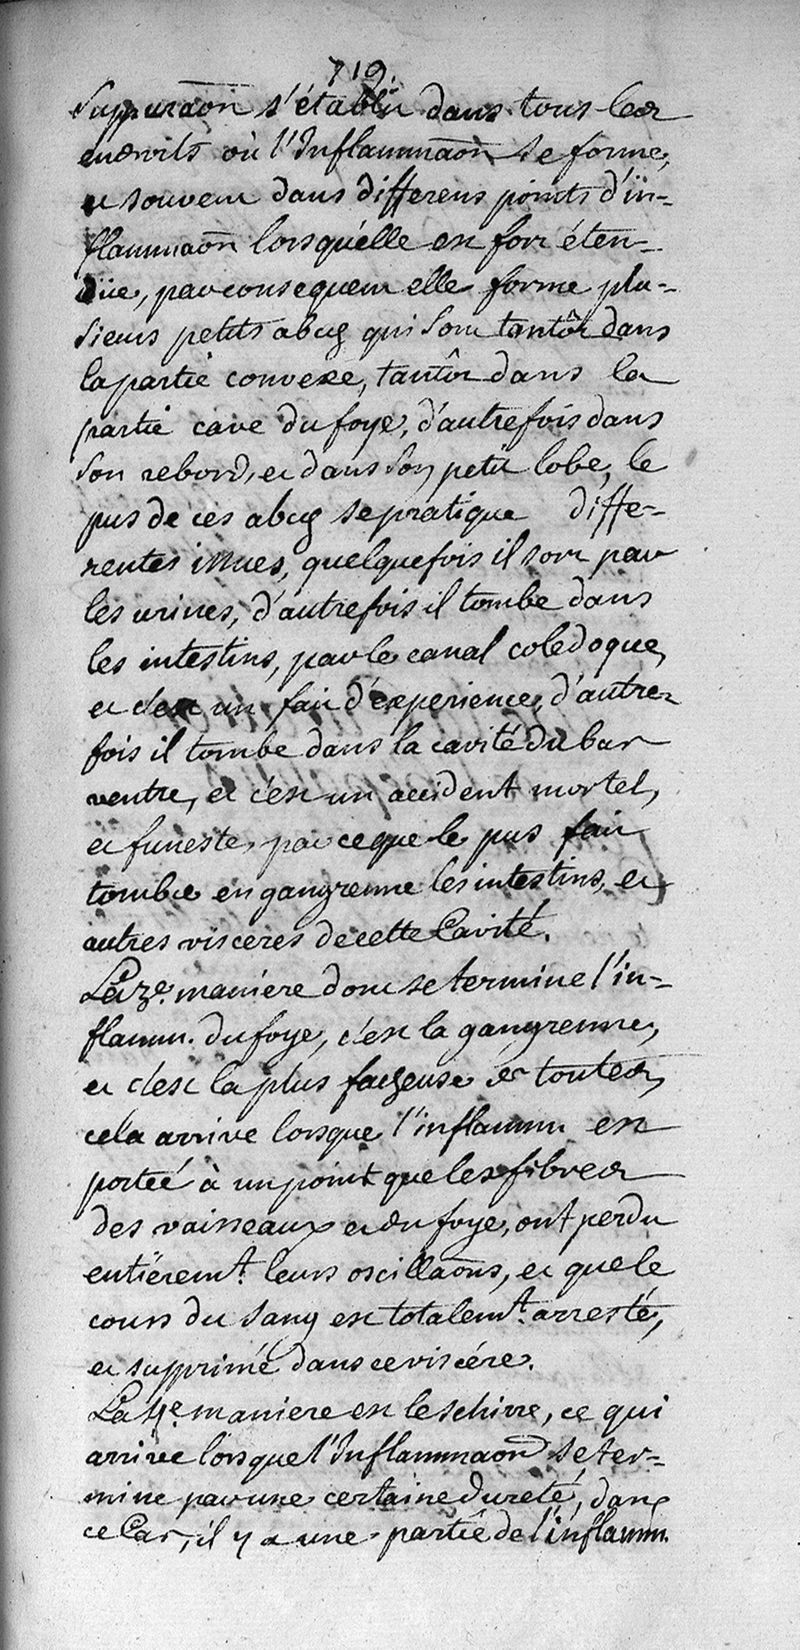 719.
Suppuraõn s'établit dans tous les
endroits où l'Inflammaõn se forme,
et souvent dans differens points d'in-
flammaõn lorsqu'elle est fort éten-
düe, par consequent elle forme plu-
sieurs petits abcès qui sont tantôt dans
la partie convexe, tantôt dans la
partie cave du foye, d'autrefois dans
son rebord, et dans son petit lobe, le
pus de ces abcès se pratique diffe-
rentes issues, quelquefois il sort par
les urines, d'autrefois il tombe dans
les intestins, par le canal coledoque,
et c'est un fait d'experience, d'autre-
fois il tombe dans la cavité du bas
ventre, et c'est un accident mortel,
et funeste, parceque le pus fait
tomber en gangrenne les intestins, et
autres visceres de cette Cavité.
La 3e. maniere dont se termine l'in-
flamm. du foye, c'est la gangrenne,
et c'est la plus facheuse de toutes,
cela arrive lorsque l'inflamm est
porteé à un point que les fibres
des vaisseaux et du foye, ont perdu
entiéremt. leurs oscillaõns, et que le
cours du sang est totalemt. arresté,
et supprimé dans ce viscére.
La 4e. maniere est le schirre, ce qui
arrive lorsque l'Inflammaõn se ter-
mine par une certaine dureté, dans
ce Cas, il y a une partie de l'inflamm.